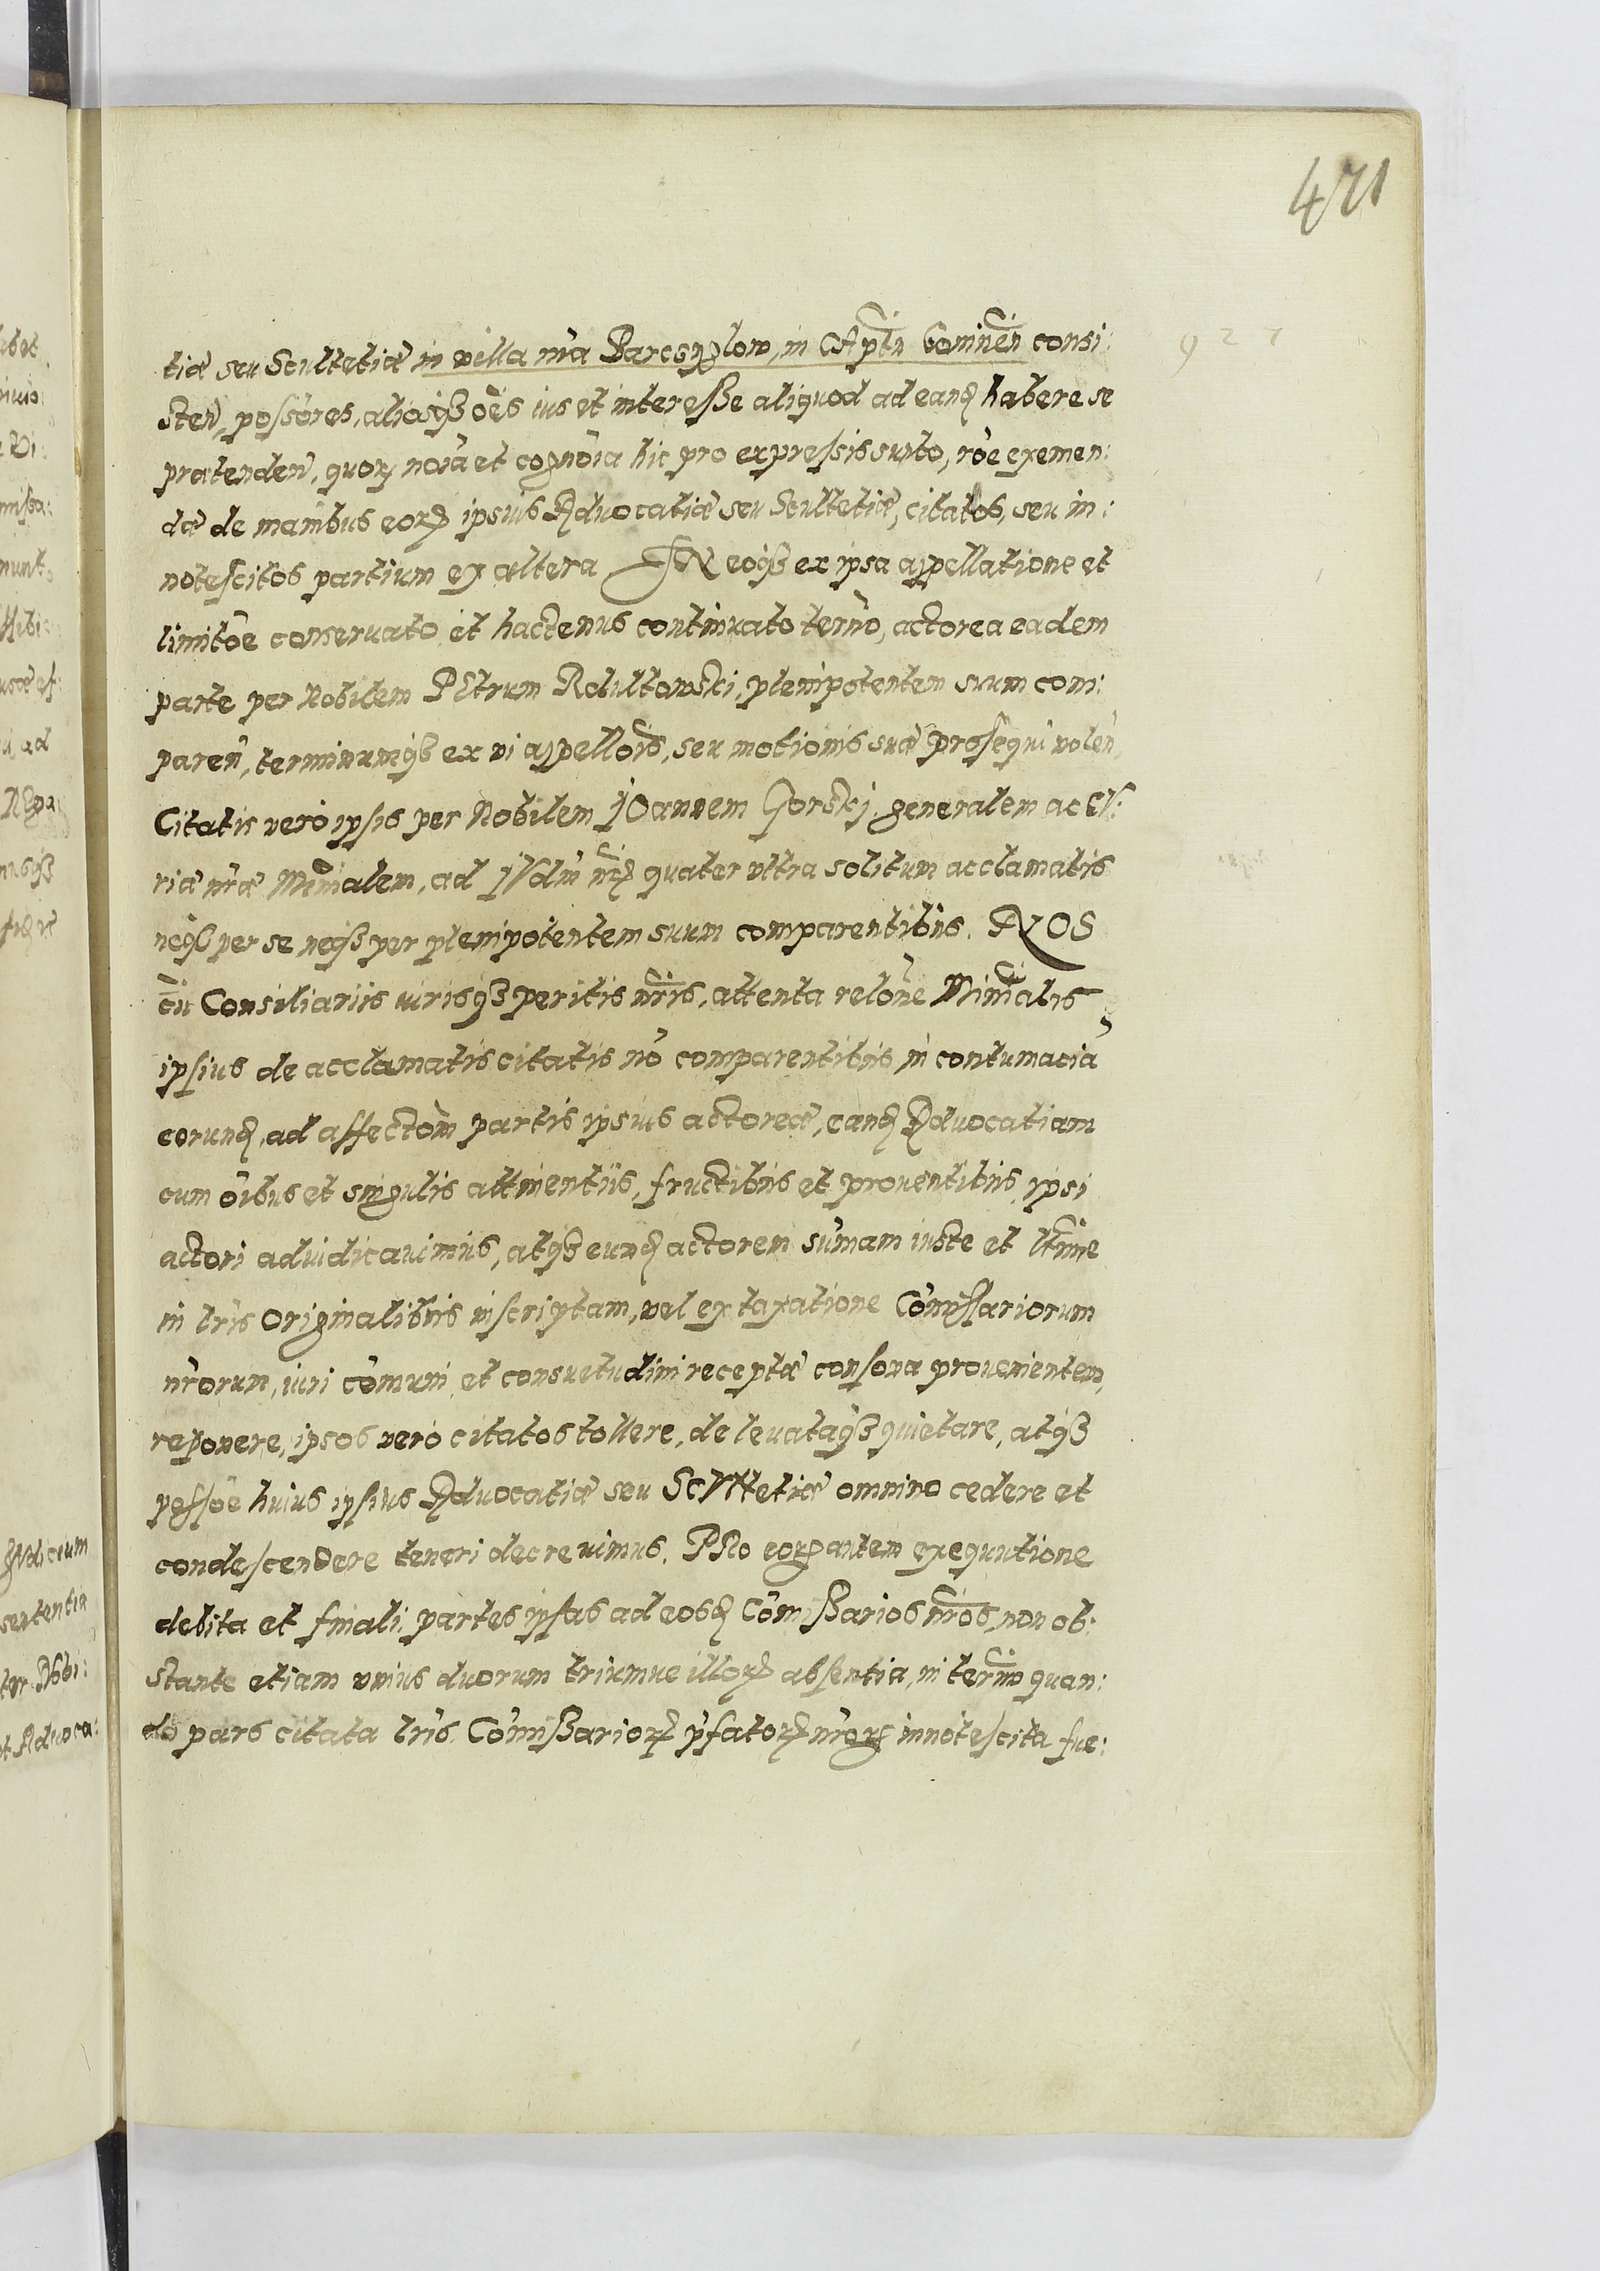 471
927
tiæ seu Scultetiæ in villa nr̃a Barcsyglow, in CAptũ Cominẽn consi:
sten̄, possõres, aliosqȝ oẽs ius et interesse aliquod ad eand̨ habere se
prætenden̄, quorꝝ noĩa et cognoĩa hic pro expressis sunto, rõe eximen:
dæ de manibus eorꝝ ipsius Aduocatiæ seu Scultetiæ, citatos, seu in:
notescitos partium ex altera IN eoqȝ ex ipsa appellatione et
limitõe conseruato et hactenus continuato termõ, actorea eadem
parte per Nobilem PEtrum Robultowski, plenipotentem suum com:
paren̄, terminumqȝ ex vi appellõis, seu motionis suæ prosequi volen̄,
Citatis vero ipsis per Nobilem JOannem Gorskj, generalem ac CV:
riæ nr̃æ Minr̃ialem, ad JVdm̃ nr̃ꝝ quater vltra solitum acclamatis
neqȝ per se neqȝ per plenipotentem suum comparentibus. NOS
cũ Consiliariis uirisqȝ peritis nr̃is, attenta relõne Minr̃ialis
ipsius de acclamatis citatis nõ comparentibus in contumaciã
eorund̨, ad affectõm partis ipsius actoreæ, eand̨ Aduocatiam
cum oĩbus et singulis attinentiis, fructibus et prouentibus ipsi
actori adiudicauimus, atqȝ eund̨ actorem sũmam iuste et ltĩme
in lr̃is Originalibus inscriptam, vel ex taxatione Cõmissariorum
nr̃orum, iuri cõmuni et consuetudini receptæ consona prouenientem,
reponere, ipsos vero citatos tollere, de leuataqȝ quietare, atqȝ
possõe huius ipsius Aduocatiæ seu SCVltetiæ omnino cedere et
condescendere teneri decreuimus. PRo eorꝝ autem exequutione
debita et finali, partes ipsas ad eosd̨ Cõmissarios nr̃os, non ob:
stante etiam vnius duorum triumue illorꝝ absentia, in termõ quan:
do pars citata lr̃is Cõmissariorꝝ p̃fatorꝝ nr̃orꝝ innotescita fue: